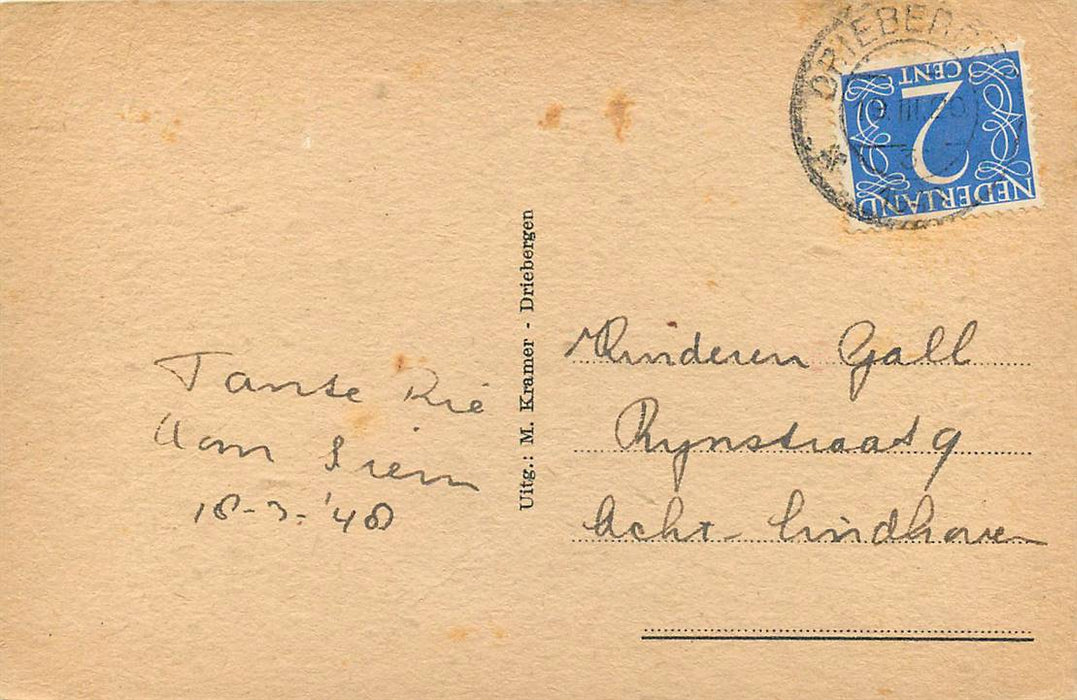 DRIEBERGEN
NEDERLAND
2
CENT
Uitg.: M. Kramer - Driebergen
Tante Rie
Oom Siem
18-3-'48
Kinderen Gall
Rynstraat 9
Acht-Eindhoven